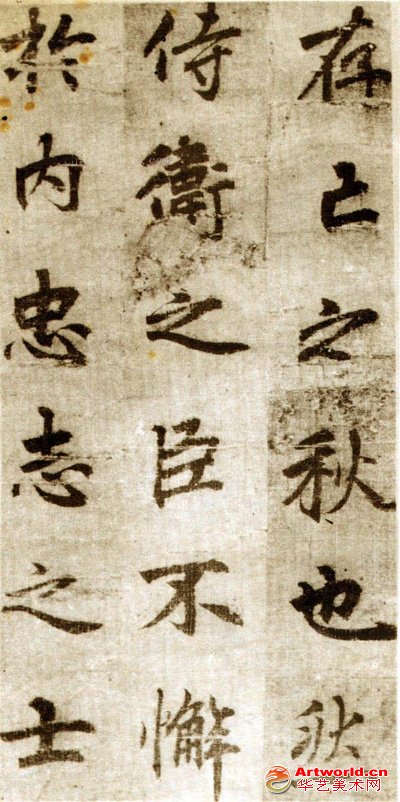 存亡之秋也
侍衛之臣不懈
於内忠志之士
Artworld.cn
华艺美术网